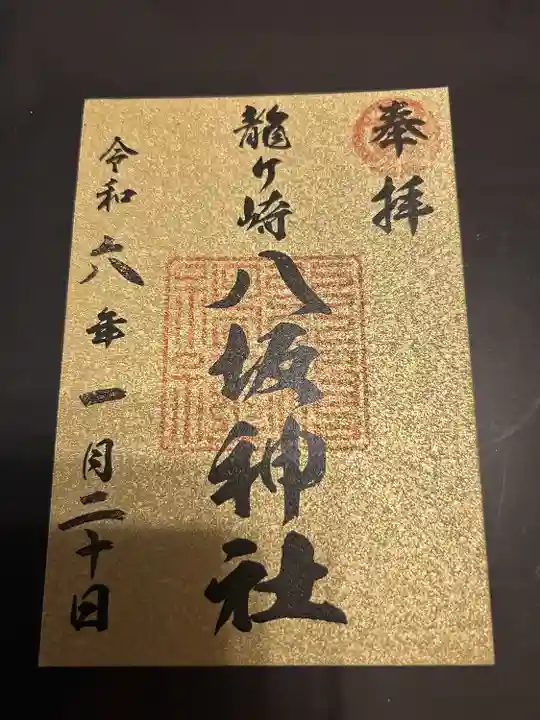 奉拝
龍ケ崎八坂神社
令和六年一月二十日